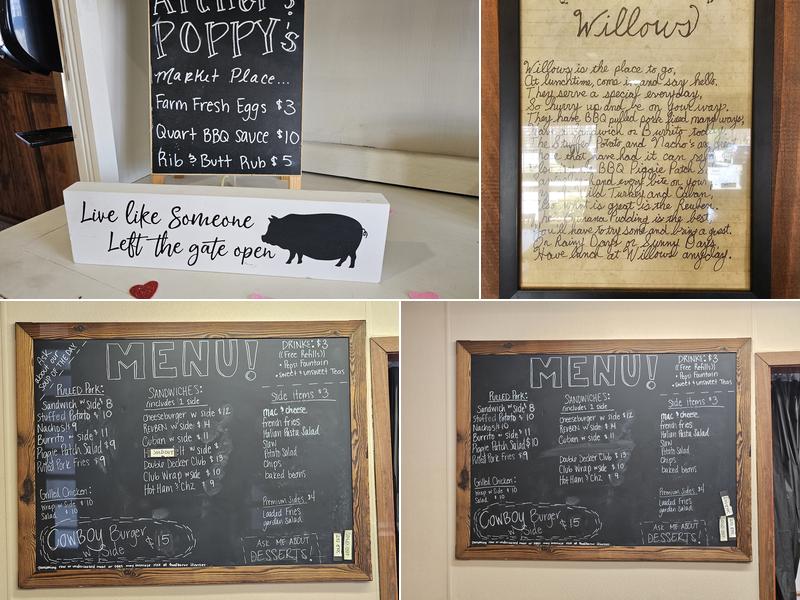 POPPY's
Market Place...
Farm Fresh Eggs $3
Quart BBQ Sauce $10
Rib & Butt Rub $5
Live like Someone
Left the gate open
Willows
Willows is the place to go,
At lunchtime, come in and say hello.
They serve a special everyday,
So hurry up and be on your way.
They have BBQ pulled pork fixed many ways,
sandwich or Burrito
The Stuffed Potato and Nacho's
that have had it can
BBQ Piggie Patch
and every bite
Turkey and Cuban,
is great is the Reuben.
Pudding is the best
You'll have to try some and bring a guest.
On Rainy Days or Sunny Days,
Have lunch at Willows anyday.
MENU!
Ask
about our
SOUP OF THE DAY
PULLED PORK:
Sandwich w/ side $8
Stuffed Potato $10
Nachos $9
Burrito w/ side $11
Piggie Patch Salad $9
Pulled Pork Fries $9
Grilled Chicken:
Wrap w/ side $10
Salad $10
SANDWICHES:
(includes 1 side)
cheeseburger w side $12
REUBEN w side $14
Cuban w side $11
SOLD OUT
Double Decker Club $13
Club Wrap w side $10
Hot Ham & Chz $9
DRINKS: $3
((Free Refills))
• Pepsi Fountain
• Sweet & unsweet Teas
Side Items $3
mac & cheese
french fries
Italian Pasta Salad
Slaw
Potato Salad
Chips
baked beans
Premium Sides $4
Loaded Fries
garden Salad
COWBOY Burger
w/ Side $15
ASK ME ABOUT
DESSERTS!
SOLD OUT
MENU!
PULLED PORK:
Sandwich w/ side $8
Stuffed Potato $10
Nachos $9
Burrito w/ side $11
Piggie Patch Salad $10
Pulled Pork Fries $9
Grilled Chicken:
Wrap w/ side $10
Salad $10
SANDWICHES:
(includes 1 side)
cheeseburger w side $12
REUBEN w side $14
Cuban w side $11
Double Decker Club $13
Club Wrap w side $10
Hot Ham & Chz $9
DRINKS: $3
((Free Refills))
• Pepsi Fountain
• Sweet & unsweet Teas
Side Items $3
mac & cheese
french fries
Italian Pasta Salad
Slaw
Potato Salad
Chips
baked beans
Premium Sides $4
Loaded Fries
garden Salad
COWBOY Burger
w/ Side $15
ASK ME ABOUT
DESSERTS!